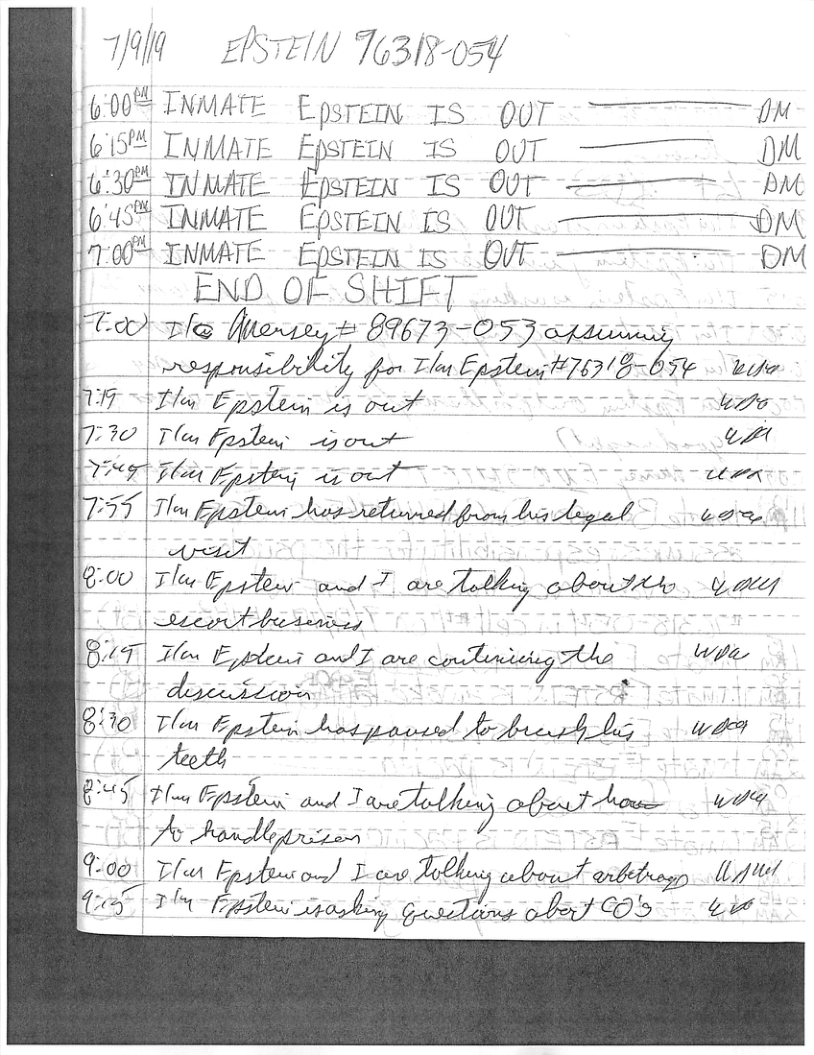 7/9/19 EPSTEIN 76318-054
6:00PM INMATE EPSTEIN IS OUT DM
6:15PM INMATE EPSTEIN IS OUT DM
6:30PM INMATE EPSTEIN IS OUT DM
6:45PM INMATE EPSTEIN IS OUT DM
7:00PM INMATE EPSTEIN IS OUT DM
END OF SHIFT
7:00 I/C Mersey # 89673-053 assuming
responsibility for I/m Epstein #76318-054
7:15 I/m Epstein is out
7:30 I/m Epstein is out
7:45 I/m Epstein is out
7:55 I/m Epstein has returned from his legal
visit
8:00 I/m Epstein and I are talking about the
escort business
8:15 I/m Epstein and I are continuing the
discussion
8:30 I/m Epstein has paused to brush his
teeth
8:45 I/m Epstein and I are talking about how
to handle prison
9:00 I/m Epstein and I are talking about arbetrage
9:15 I/m Epstein is asking questions about CO's